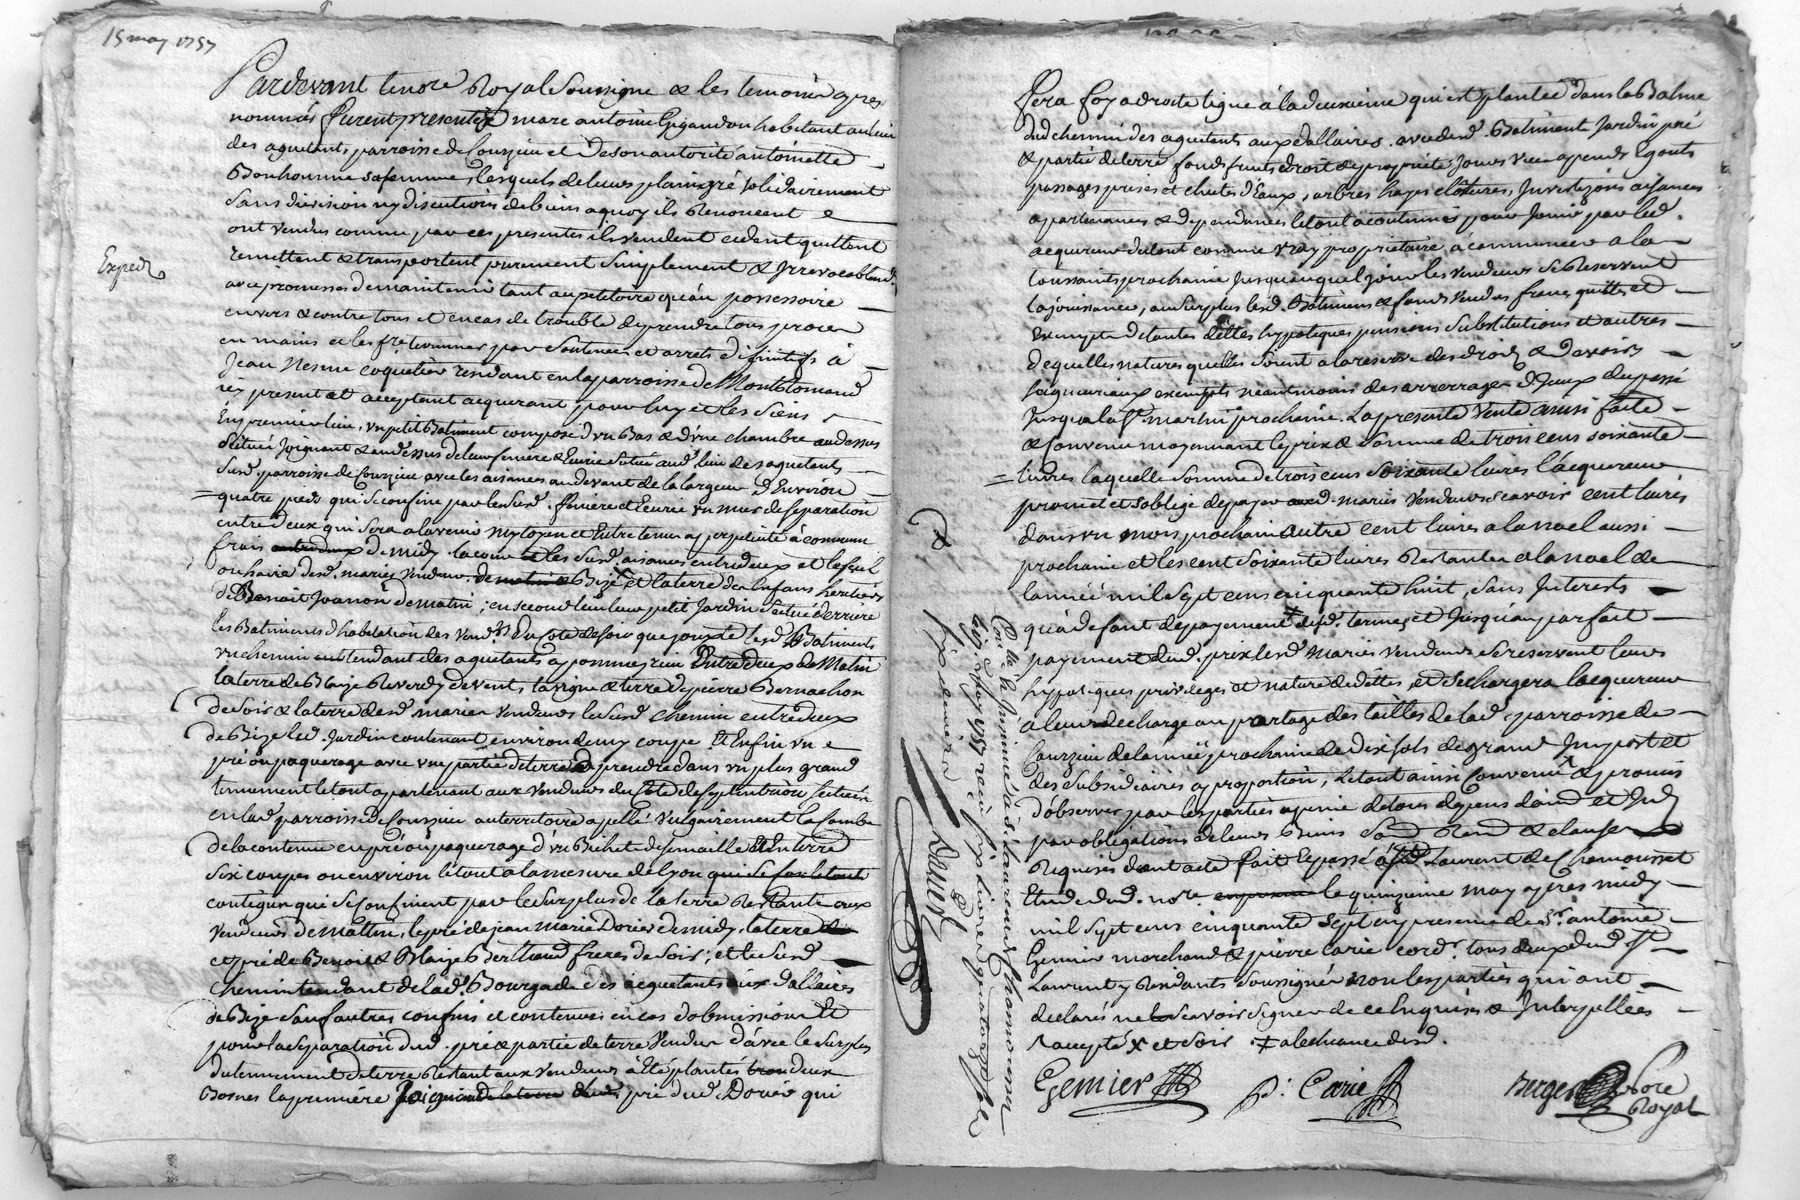 15 may 1757
Pardevant le nore Royal Soussigné & les temoins apres
nommés furent presents marc antoine Gigandon habitant au lieu
des aquetants parroisse de Courzieu et de son autorité antoinette
Bonhomme sa femme, lesquels de leurs plain gré solidairement
sans division ny discution de biens a quoy ils Renoncent
ont vendus comme par ces presentes ils vendent cedent quittent
remettent & transportent purement simplement & Irrevocablemt
avec promesses de maintenir tant au petitoire qu'au possessoire
envers & contre tous et en cas de trouble de prendre tous proces
en mains et les fre terminer par sentences et arrets difinitifs à
Jean Nesme coquetier residant en la parroisse de Montromand
icy present et acceptant acquerant pour luy et les siens
Expedié
En premier lieu, un petit Batiment composé d'un Bas & d'une chambre au dessus
situé Joignant & audessus de leur feniere & Ecurie situé aud. lieu des aquetants
susd. parroisse de Courzieu avec les aisances au devant de la largeur d'Environ
quatre pieds qui se confine par lesusd. feniere et Ecurie un mur de separation
entredeux qui sera a l'avenir mytoyen et Entretenu a perpetuité à commun
frais de midy la cour les susd. aisances entredeux et
desd. mariés vendeurs de Bize et la terre des Enfans heritiers
de Benoit Joanon de matin; en second lieu leur petit Jardin situé derriere
les Batiments d'habitation des vendrs du coté de soir que jouxte lesd. Batiments
un chemin tendant des aquetants a pommezieu Entredeux de Matin
la terre de Blaize Reverdy de vent, la vigne & terre de pierre Bernachon
de soir & la terre desd. maries vendeurs lesusd. chemin entredeux
de Bize led. Jardin contenant environ demy coupe Et Enfin un
pré ou paquerage avec une partie de terre a prendre dans un plus grand
tennement le tout apartenant aux vendeurs du coté de septentrion scitués
en lad. parroisse de Courzieu au territoire apellé vulgairement la Combe
de la contenue en pré ou paquerage d'un Bichet de semaille & En terre
six coupes ou environ le tout a la mesure de Lyon
contigu qui se confinent par le surplus de la terre Restante aux
vendeurs de mattin, le pré de jean Marie Dorier de midy, la terre
et pré de Benoit & Blaize Bertheend freres de soir; et lesusd.
chemin tendant de lad. Bourgade des aequetants aux Dallaires
de Bize sauf autres confins et contenues en cas d'obmission Et
pour la separation dud. pré & partie de terre vendue d'avec le surplus
du tennement de terre Restant aux vendeurs à Eté plantés deux
Bornes la premiere Joignand la terre pré dud. Dorier qui
fera foy a droite ligne à la deuxieme qui est plantée dans la Balme
dud. chemin des aquetants aux Dallaires. avec led. Batiment Jardin pré
& partie de terre fonds fruits droit & proprieté Jours veues apends Egouts
passages prises et chutes d'Eaux, arbres hayes clotures, Investizons aisances
apartenances & dependances le tout accoutumé pour Jouir par led.
acquereur du tout comme vray proprietaire à commencer a la
toussaints prochaine Jusqu'auquel jour les vendeurs se Reservent
la jouissance, au surplus lesd. Batimens & fonds vendus francs quittes et
Exempts de toutes dettes hypoteques pensions substitutions et autres
de quelles natures quelles soient a la reserve des droits & devoirs
seigneuriaux exempts neantmoins des arrerages d'Iceux du passé
Jusqu'a la St martin prochaine. La presente vente ainsi faite
& convenue moyennant le prix & somme de trois cens soixante
livres laquelle somme de trois cens soixante livres l'acquereur
promet et s'oblige de payer auxd. mariés vendeurs scavoir cent livres
dans un mois prochain autre cent livres a la noel aussi
prochaine et les cent soixante livres Restantes a la noel de
l'année mil sept cens cinquante huit, sans Interets
qu'a defaut de payement desd. termes et Jusqu'au parfait
payement dud. prix lesd. Mariés vendeurs se reservent leurs
hypoteques privileges et nature de dettes, et se chargera l'acquereur
a leur decharge au partage des tailles de lad. parroisse de
Courzieu de l'année prochaine de dix sols de grand Import et
des subsidiaires a proportion, le tout ainsi convenu & promis
d'observer par les parties a peine de tous depens dom. et Int.
par obligations de leurs Biens soum. Renon. & clauses
Requises dont acte fait Et passé a St Laurent de Chamousset
Etude dud. nore le quinzieme may apres midy
mil sept cens cinquante sept en presence de sr. antoine
Gemier marchand & pierre Carié cordr. tous deux dud. St
Laurent y Residants soussignés non les parties qui ont
declarés ne scavoir signer de ce Enquises & Interpellées
accepté X et soir. ‡ a l'echeance desd.
Gemier P. Carié Berger nore Royal
Con.lé & Insinué à St. Laurent de Chamousset
le 25 May 1757 reçu six livres quatorze sols
six deniers